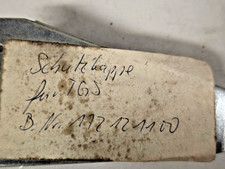 Schutzkappe
für TGS
B. Nr. 117 121 100